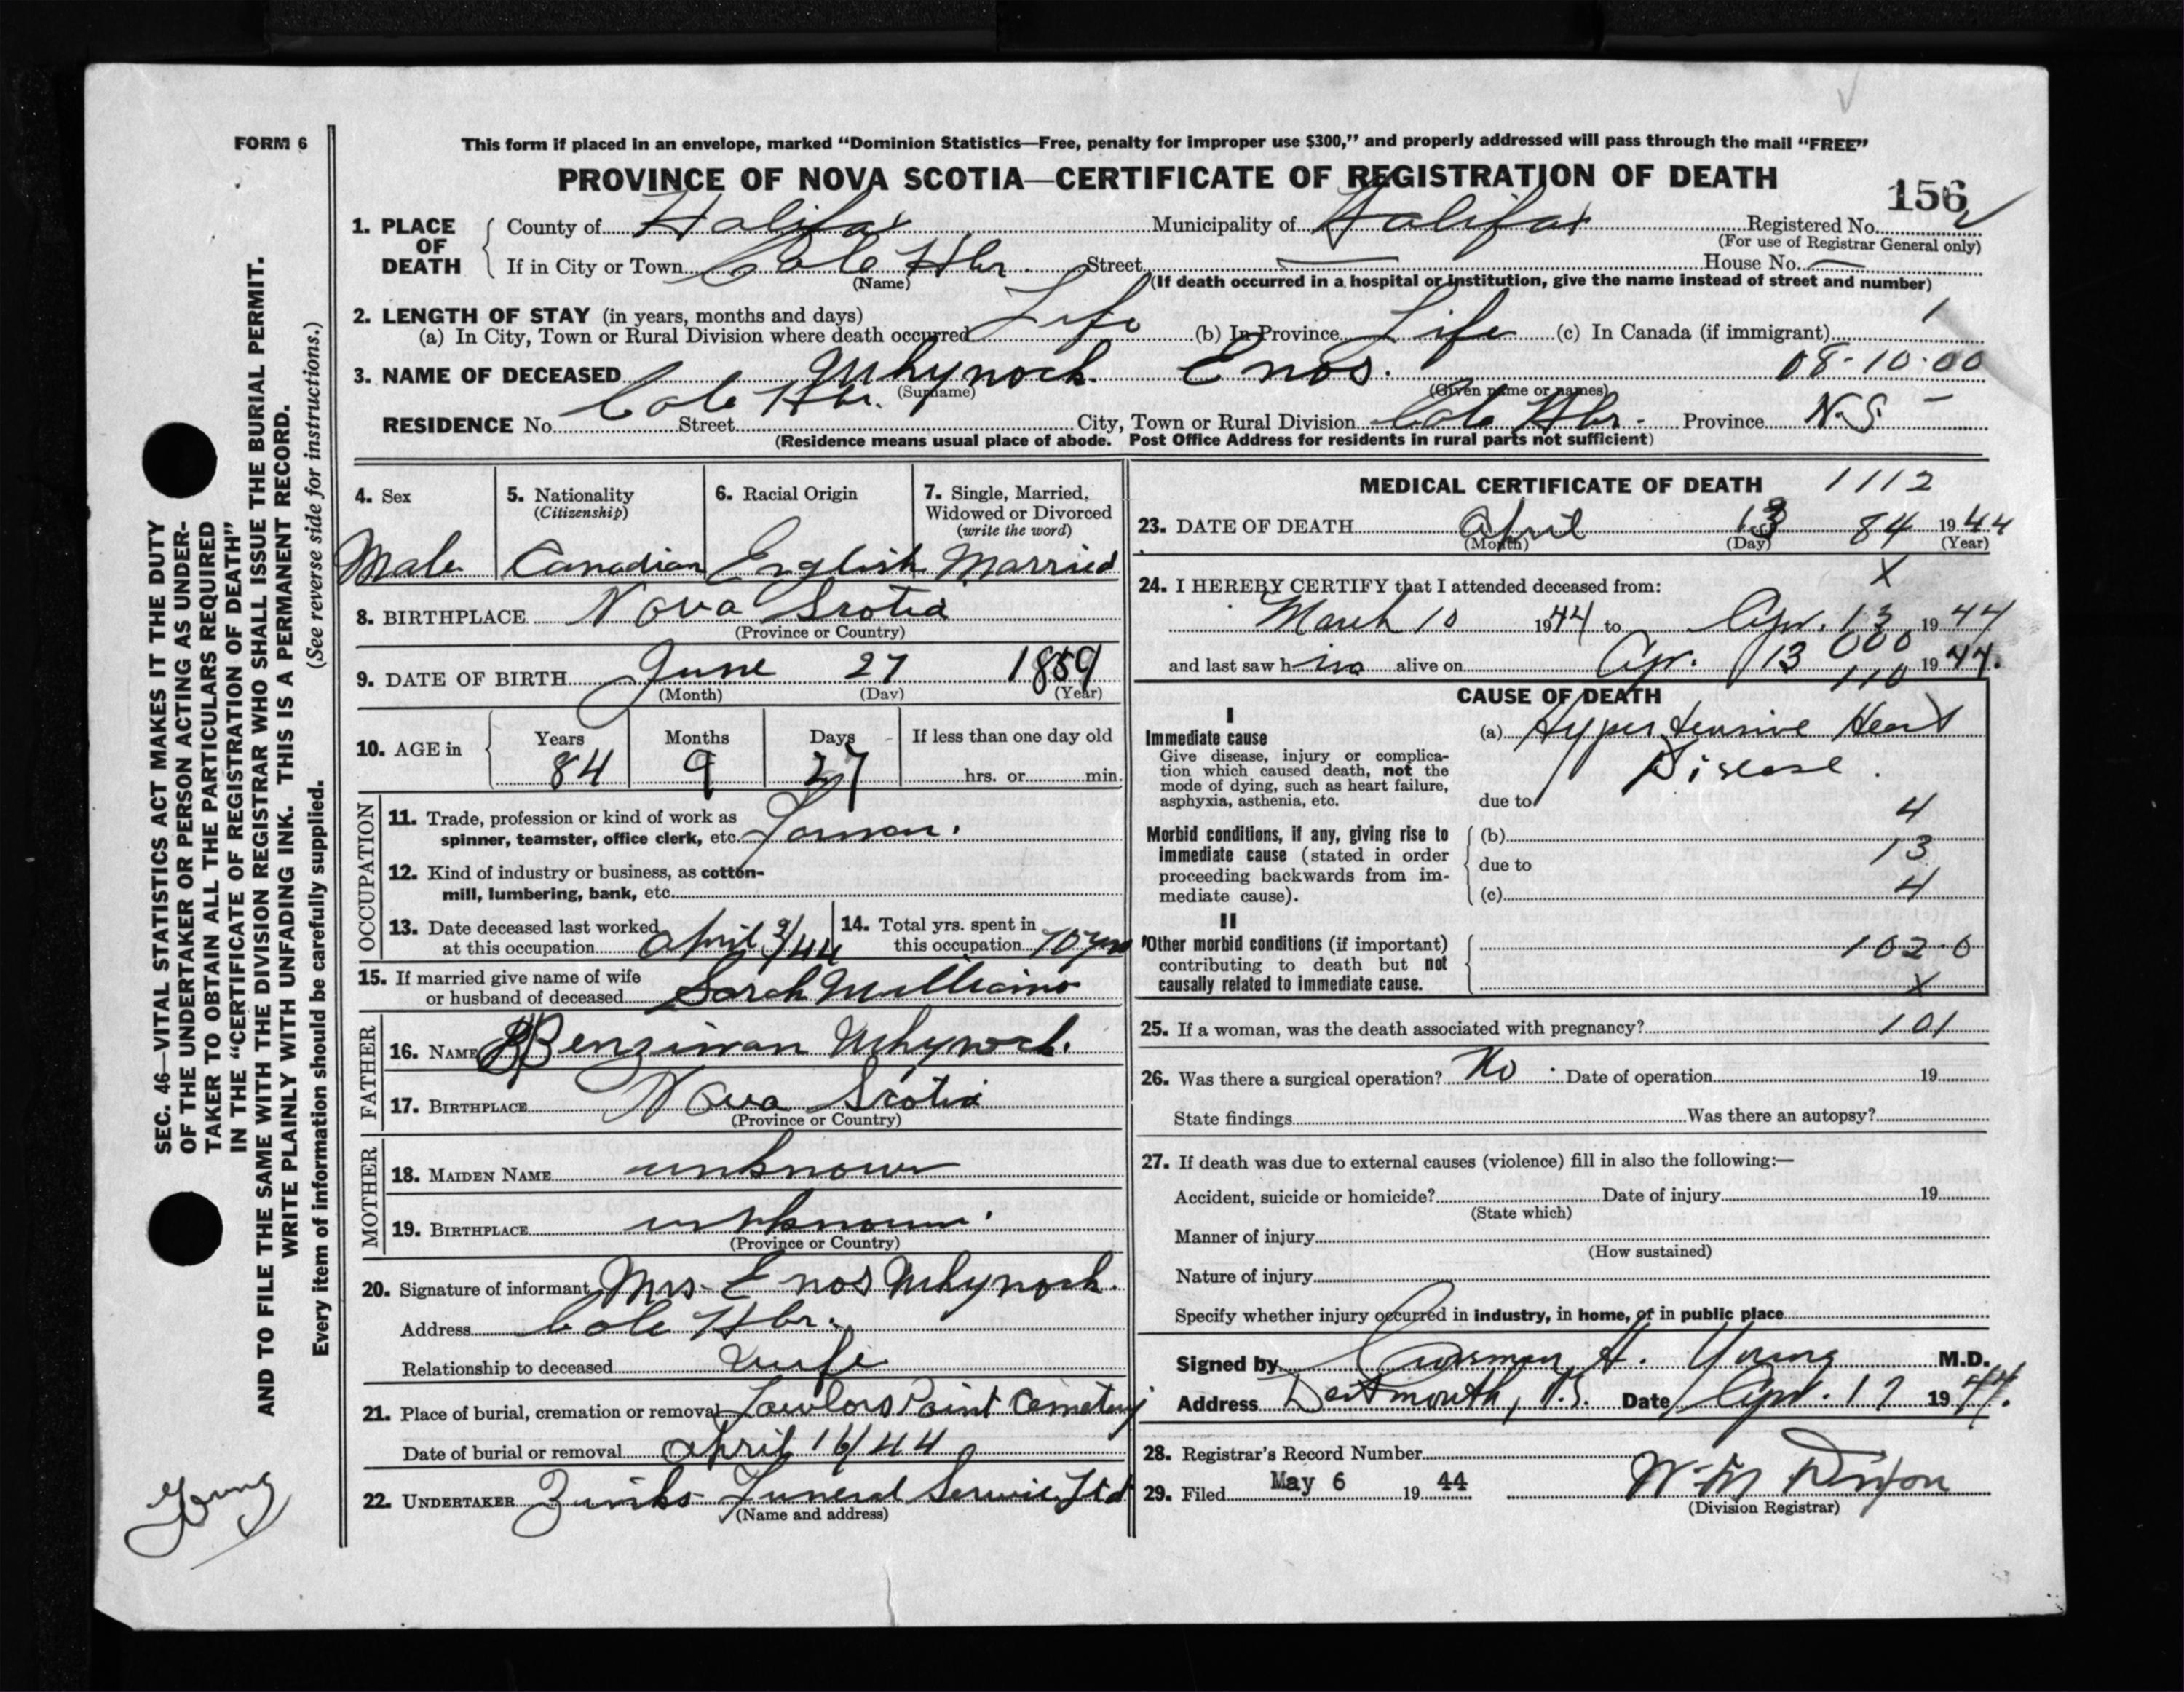 FORM 6
This form if placed in an envelope, marked “Dominion Statistics—Free, penalty for improper use $300,” and properly addressed will pass through the mail “FREE”
PROVINCE OF NOVA SCOTIA—CERTIFICATE OF REGISTRATION OF DEATH
156
1. PLACE OF DEATH
County of Halifax Municipality of Halifax Registered No.
(For use of Registrar General only)
If in City or Town Cole Hbr. Street — House No. —
(Name) (If death occurred in a hospital or institution, give the name instead of street and number)
2. LENGTH OF STAY (in years, months and days)
(a) In City, Town or Rural Division where death occurred Life (b) In Province Life (c) In Canada (if immigrant) 1
3. NAME OF DECEASED Whynoch Enos. 08-10-00
(Surname) (Given name or names)
RESIDENCE No. Cole Hbr. Street City, Town or Rural Division Cole Hbr. Province N.S. —
(Residence means usual place of abode. Post Office Address for residents in rural parts not sufficient)
4. Sex
Male
5. Nationality
(Citizenship)
Canadian
6. Racial Origin
English
7. Single, Married, Widowed or Divorced
(write the word)
Married
8. BIRTHPLACE Nova Scotia
(Province or Country)
9. DATE OF BIRTH June 27 1859
(Month) (Day) (Year)
10. AGE in Years Months Days If less than one day old
84 9 27 hrs. or min.
OCCUPATION
11. Trade, profession or kind of work as
spinner, teamster, office clerk, etc.
12. Kind of industry or business, as cotton-
mill, lumbering, bank, etc.
13. Date deceased last worked
at this occupation April /44
14. Total yrs. spent in
this occupation 70 yrs
15. If married give name of wife
or husband of deceased Sarah Williams
FATHER
16. NAME Benziman Whynoch.
17. BIRTHPLACE Nova Scotia
(Province or Country)
MOTHER
18. MAIDEN NAME unknown
19. BIRTHPLACE unknown.
(Province or Country)
20. Signature of informant Mrs - Enos Whynoch.
Address Cole Hbr.
Relationship to deceased Wife
21. Place of burial, cremation or removal Lawlors Point Cemetery
Date of burial or removal April 16/44
22. UNDERTAKER Zinks Funeral Service Ltd
(Name and address)
MEDICAL CERTIFICATE OF DEATH 1112
23. DATE OF DEATH April 13 84 1944
(Month) (Day) (Year)
X
24. I HEREBY CERTIFY that I attended deceased from:
March 10 1944 to Apr. 13 1944
000
and last saw him alive on Apr. 13 1944.
110
CAUSE OF DEATH
I
Immediate cause
Give disease, injury or complica-
tion which caused death, not the
mode of dying, such as heart failure,
asphyxia, asthenia, etc.
(a) Hypertensive Heart
Disease.
due to
4
Morbid conditions, if any, giving rise to
immediate cause (stated in order
proceeding backwards from im-
mediate cause).
(b)
13
due to
4
(c)
II
Other morbid conditions (if important)
contributing to death but not
causally related to immediate cause.
102.0
X
25. If a woman, was the death associated with pregnancy? 101
26. Was there a surgical operation? No Date of operation 19
State findings Was there an autopsy?
27. If death was due to external causes (violence) fill in also the following:—
Accident, suicide or homicide? Date of injury 19
(State which)
Manner of injury
(How sustained)
Nature of injury
Specify whether injury occurred in industry, in home, or in public place
Signed by H. Young M.D.
Address Dartmouth, N.S. Date Apr. 17 1944.
28. Registrar's Record Number
29. Filed May 6 19 44
(Division Registrar)
SEC. 46—VITAL STATISTICS ACT MAKES IT THE DUTY
OF THE UNDERTAKER OR PERSON ACTING AS UNDER-
TAKER TO OBTAIN ALL THE PARTICULARS REQUIRED
IN THE “CERTIFICATE OF REGISTRATION OF DEATH”
AND TO FILE THE SAME WITH THE DIVISION REGISTRAR WHO SHALL ISSUE THE BURIAL PERMIT.
WRITE PLAINLY WITH UNFADING INK. THIS IS A PERMANENT RECORD.
Every item of information should be carefully supplied. (See reverse side for instructions.)
Young